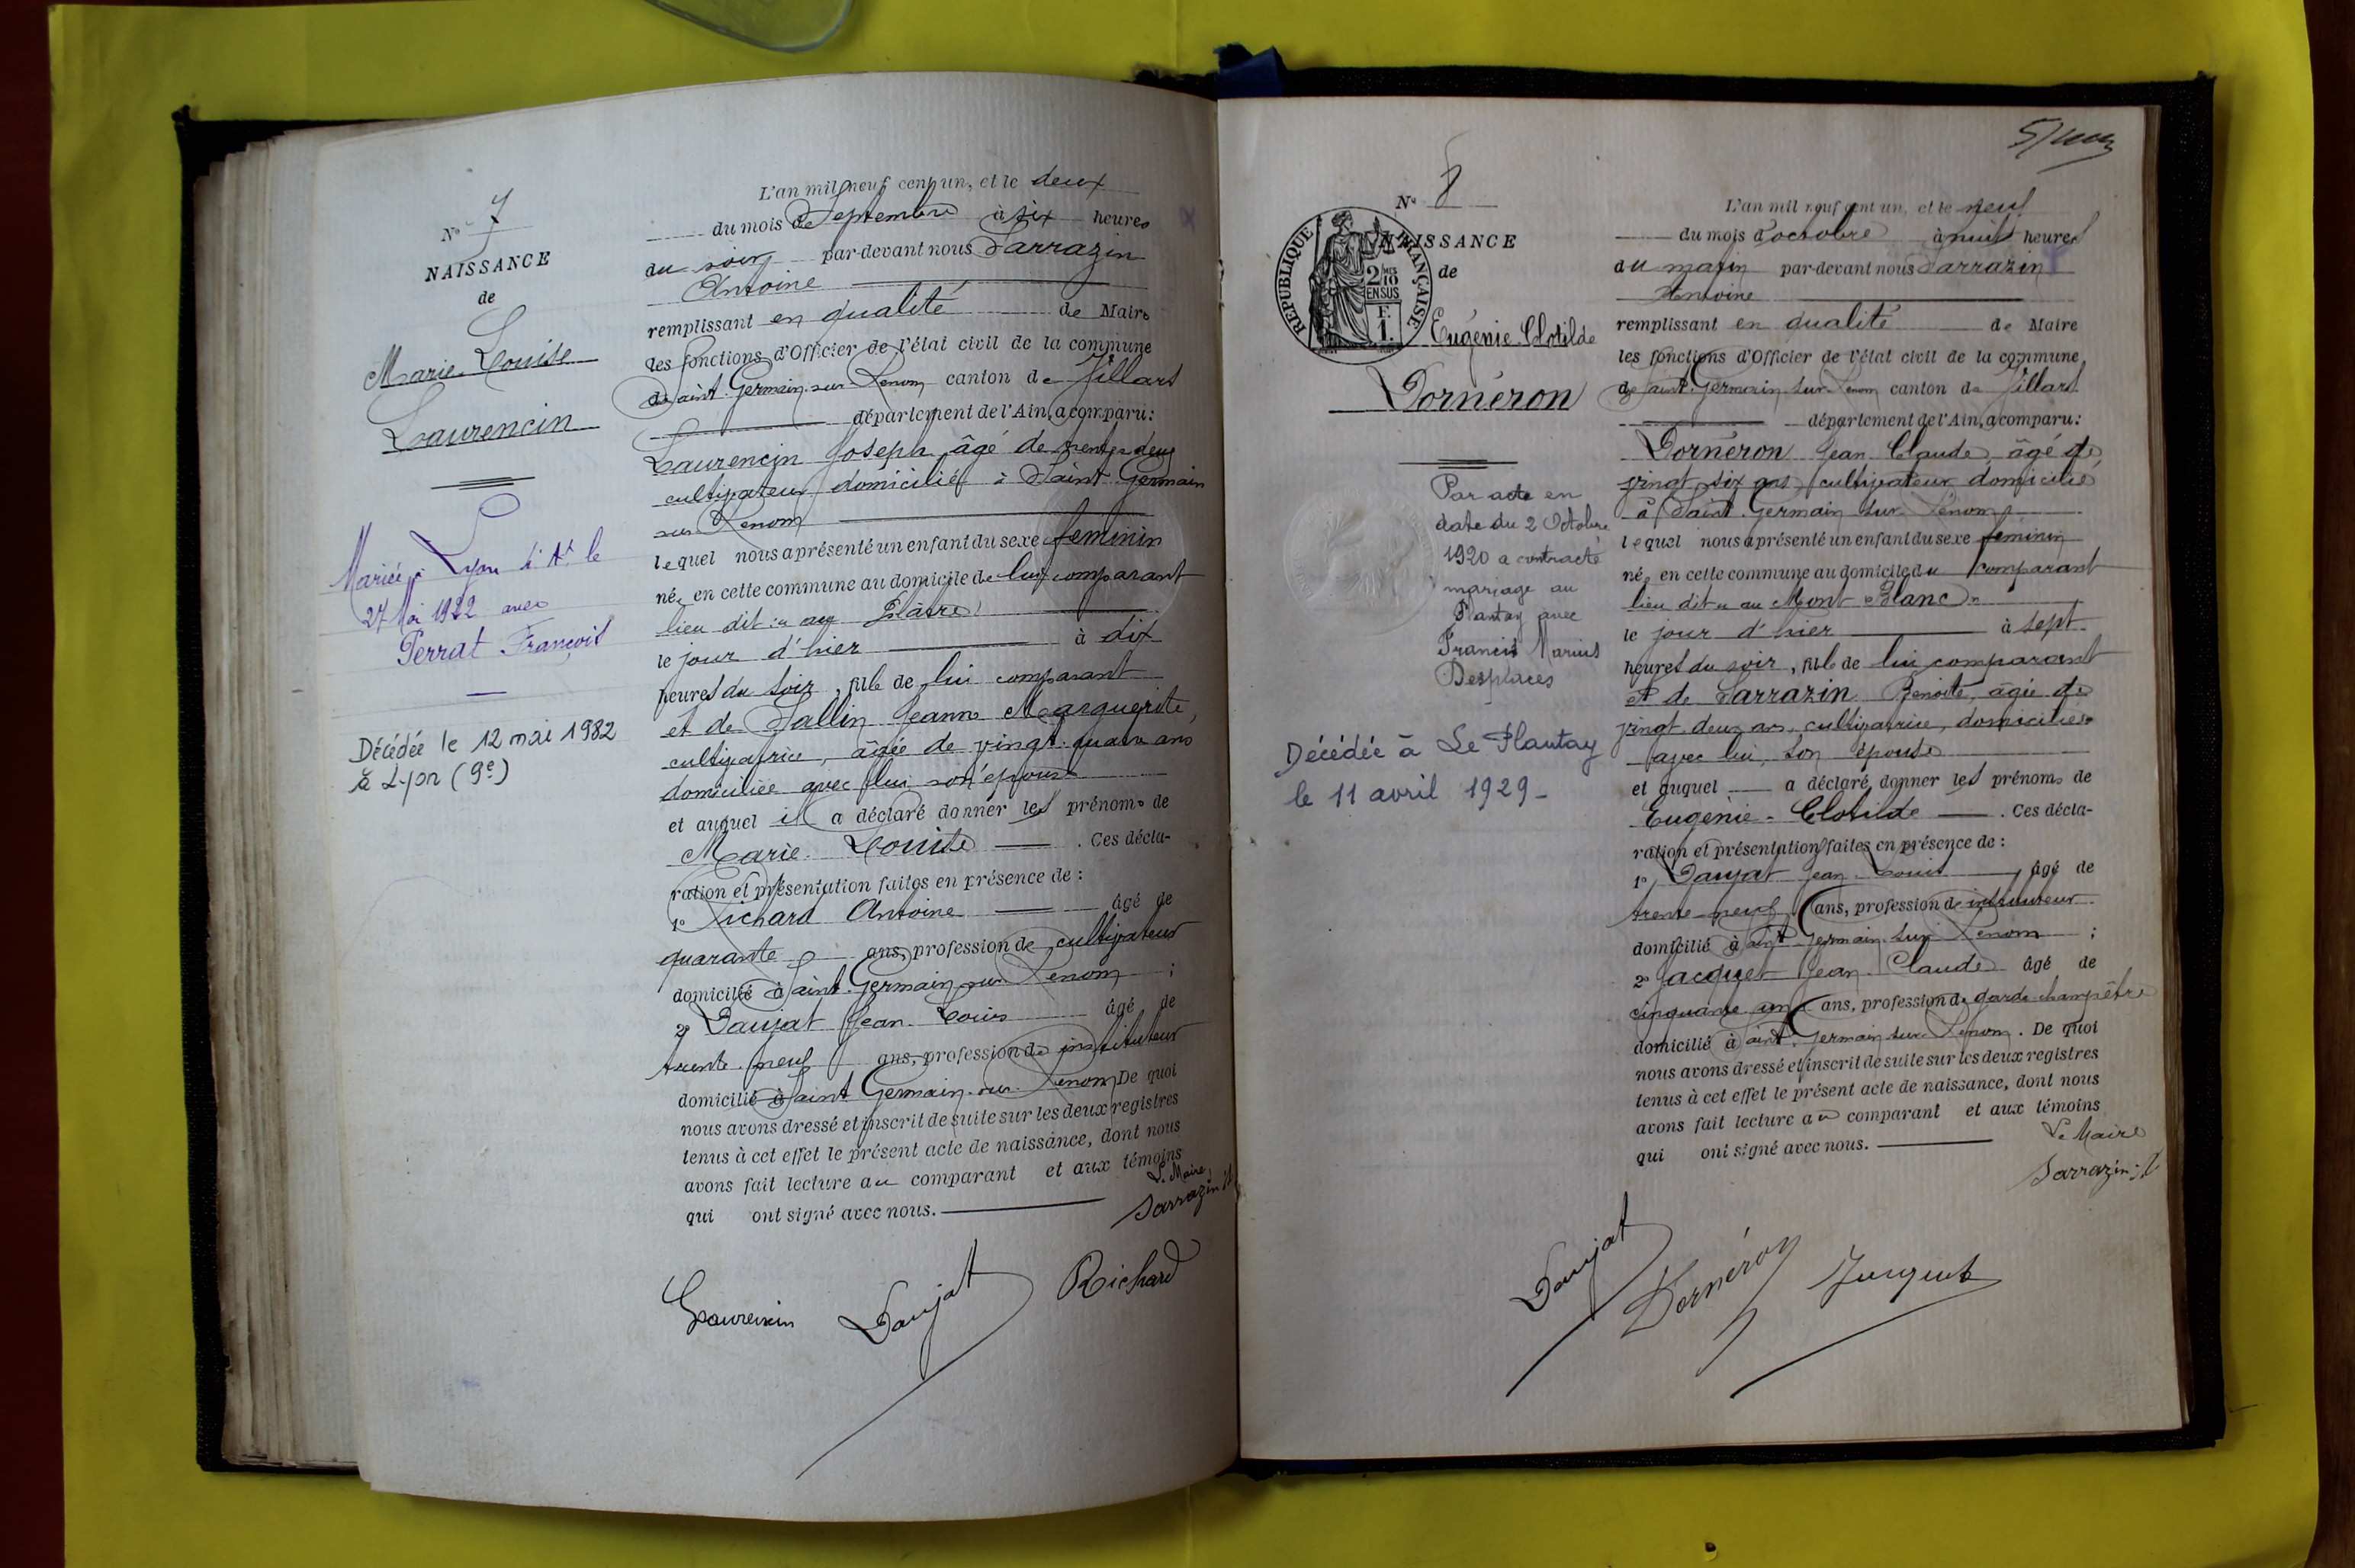 N° 7
NAISSANCE
de
Marie Louise
Laurencin
Mariée à Lyon le
27 Mai 1922 avec
Perrat François
Décédée le 12 mai 1982
à Lyon (9e)
L'an mil neuf cent un, et le deux
du mois de Septembre à six heures
du soir par-devant nous Sarrazin
Antoine
remplissant en qualité de Maire
les fonctions d'Officier de l'état civil de la commune
de Saint Germain sur Renom canton de Villars
département de l'Ain, a comparu:
Laurencin Joseph, âgé de trente deux
cultivateur domicilié à Saint Germain
sur Renom
lequel nous a présenté un enfant du sexe féminin
née en cette commune au domicile de lui comparant
lieu dit: " au Plâtre "
le jour d'hier à dix
heures du soir, fille de lui comparant
et de Sallin Jeanne Marguerite,
cultivatrice, âgée de vingt quatre ans
domiciliée avec lui son épouse
et auquel il a déclaré donner les prénoms de
Marie Louise . Ces décla-
ration et présentation faites en présence de :
1° Richard Antoine âgé de
quarante ans, profession de cultivateur
domicilié à Saint Germain sur Renom ;
2° Daujat Jean Louis âgé de
trente neuf ans, profession de instituteur
domicilié à Saint Germain sur Renom De quoi
nous avons dressé et inscrit de suite sur les deux registres
tenus à cet effet le présent acte de naissance, dont nous
avons fait lecture au comparant et aux témoins
qui ont signé avec nous.
Le Maire,
Sarrazin
Laurencin Daujat Richard
N° 8
RÉPUBLIQUE FRANÇAISE
2/10 EN SUS
F.
1.
NAISSANCE
de
Eugénie Clotilde
Dornéron
Par acte en
date du 2 Octobre
1920 a contracté
mariage au
Plantay avec
Francis Marius
Desplaces
Décédée à Le Plantay
le 11 avril 1929 -
L'an mil neuf cent un, et le neuf
du mois d'octobre à neuf heures
du matin par-devant nous Sarrazin
Antoine
remplissant en qualité de Maire
les fonctions d'Officier de l'état civil de la commune
de Saint Germain sur Renom canton de Villars
département de l'Ain, a comparu:
Dornéron Jean Claude, âgé de
vingt six ans, cultivateur domicilié
à Saint Germain sur Renom
lequel nous a présenté un enfant du sexe féminin
née en cette commune au domicile du comparant
lieu dit " au Mont Blanc "
le jour d'hier à sept
heures du soir, fille de lui comparant
et de Sarrazin Benoite, âgée de
vingt deux ans, cultivatrice, domiciliée
avec lui, son épouse
et auquel a déclaré donner les prénoms de
Eugénie - Clotilde . Ces décla-
ration et présentation faites en présence de :
1° Daujat Jean Louis , âgé de
trente-neuf ans, profession de instituteur
domicilié à St Germain sur Renom ;
2° Jacquet Jean Claude âgé de
cinquante un ans, profession de garde champêtre
domicilié à Saint Germain sur Renom. De quoi
nous avons dressé et inscrit de suite sur les deux registres
tenus à cet effet le présent acte de naissance, dont nous
avons fait lecture au comparant et aux témoins
qui ont signé avec nous.
Le Maire
Sarrazin
Daujat Dornéron Jacquet